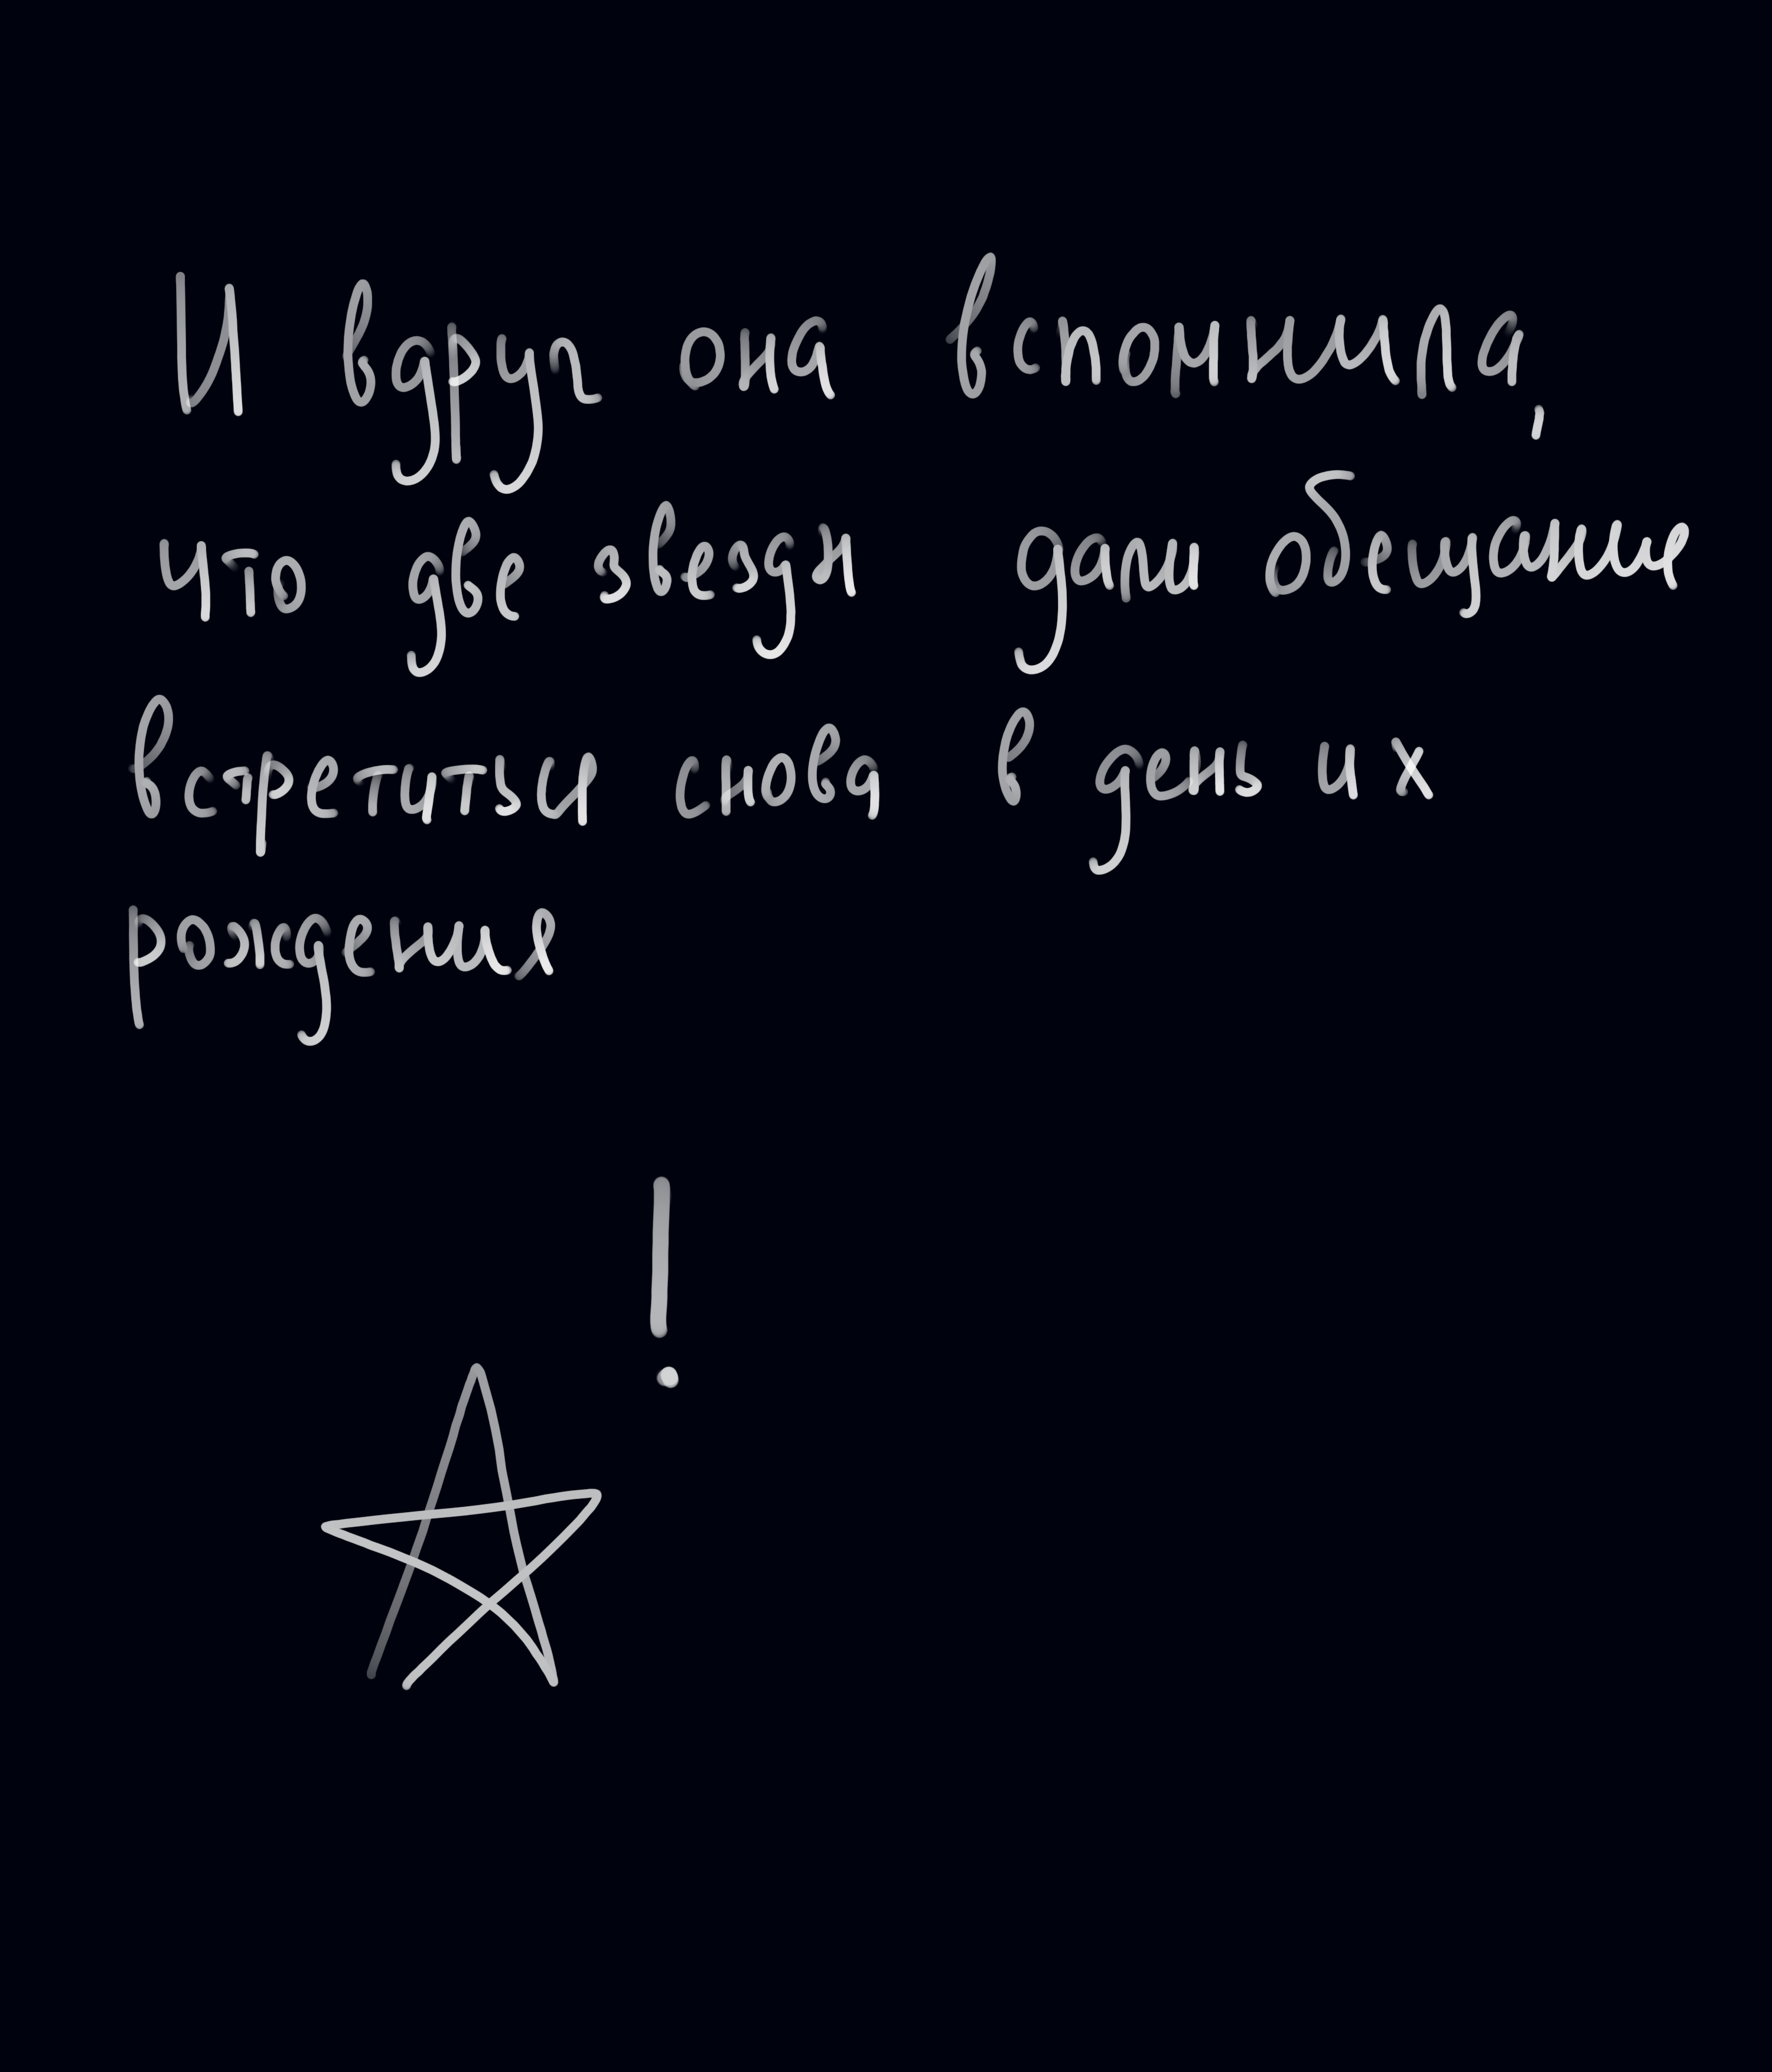 И вдруг она вспомнила,
что две звезды дали обещание
встретиться снова в день их
рождения
!